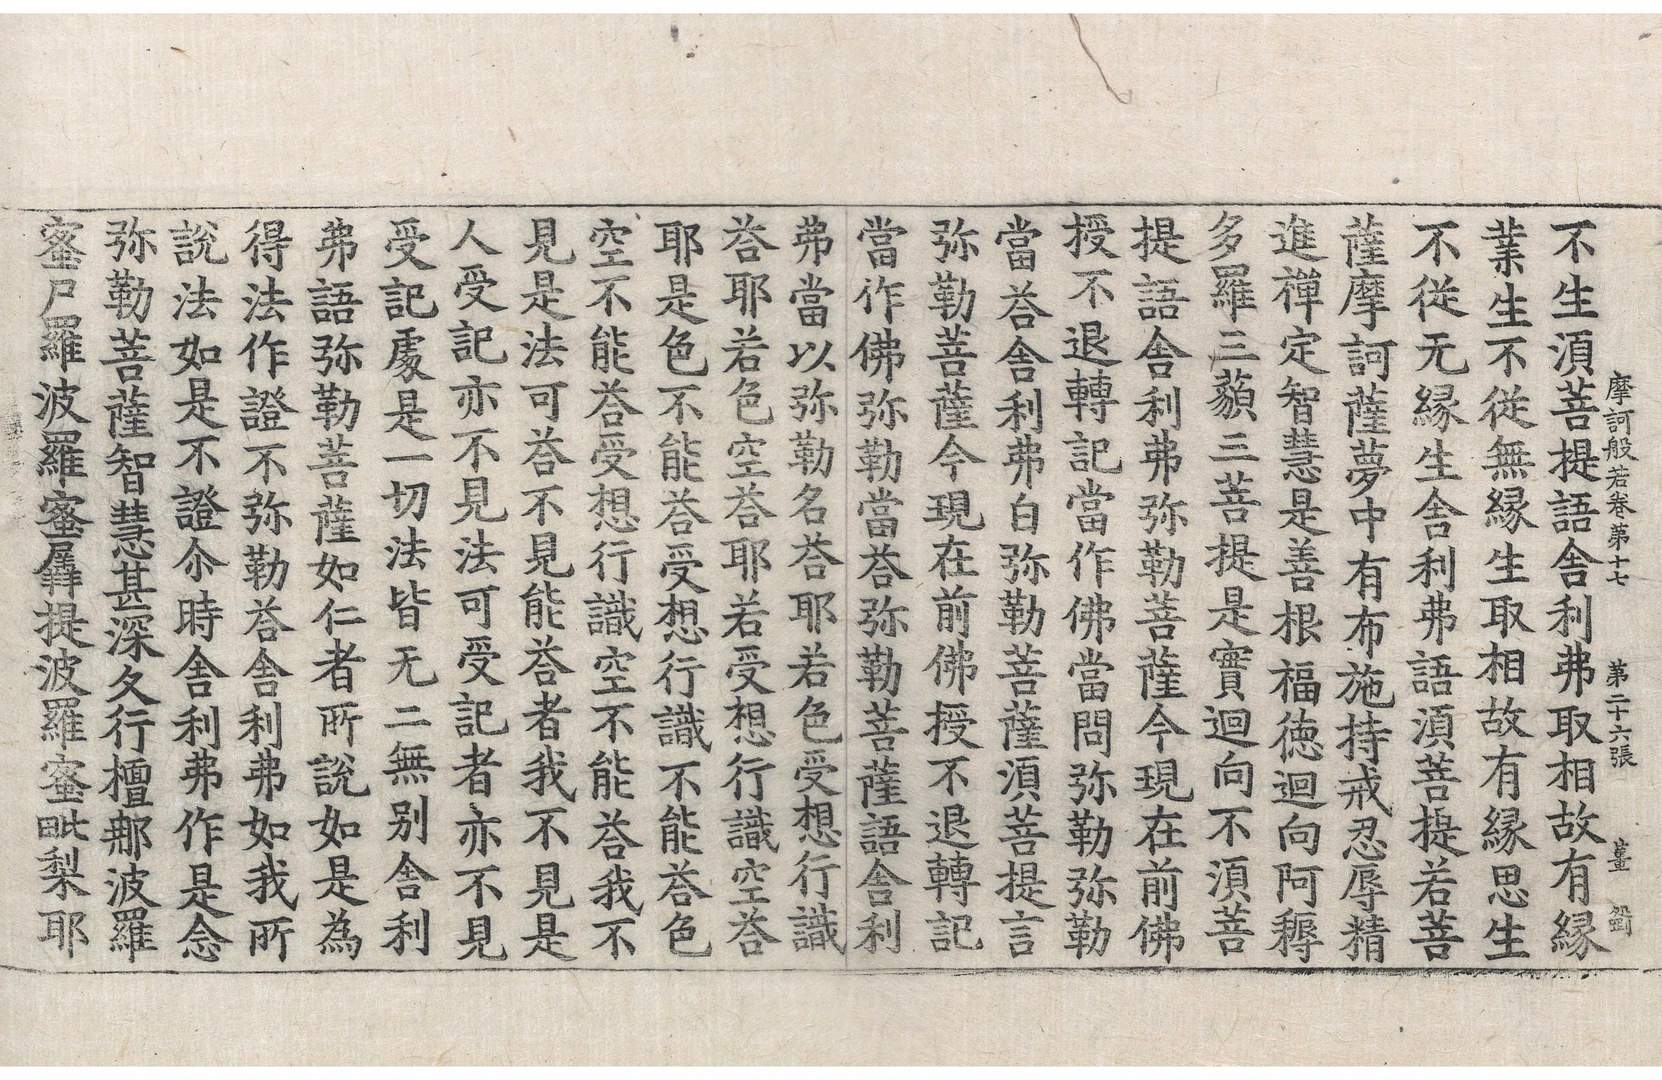 摩訶般若卷第十七　第二十六張　畺
不生湏菩提語舍利弗取相故有縁
業生不從無縁生取相故有縁思生
不從无縁生舍利弗語湏菩提若菩
薩摩訶薩夢中有布施持戒忍辱精
進禪定智慧是善根福徳迴向阿耨
多羅三藐三菩提是實迴向不湏菩
提語舍利弗弥勒菩薩今現在前佛
授不退轉記當作佛當問弥勒弥勒
當荅舍利弗白弥勒菩薩湏菩提言
弥勒菩薩今現在前佛授不退轉記
當作佛弥勒當荅弥勒菩薩語舍利
弗當以弥勒名荅耶若色受想行識
荅耶若色空荅耶若受想行識空荅
耶是色不能荅受想行識不能荅色
空不能荅受想行識空不能荅我不
見是法可荅不見能荅者我不見是
人受記亦不見法可受記者亦不見
受記處是一切法皆无二無别舍利
弗語弥勒菩薩如仁者所說如是為
得法作證不弥勒荅舍利弗如我所
說法如是不證尒時舍利弗作是念
弥勒菩薩智慧甚深久行檀那波羅
蜜尸羅波羅蜜羼提波羅蜜毗梨耶